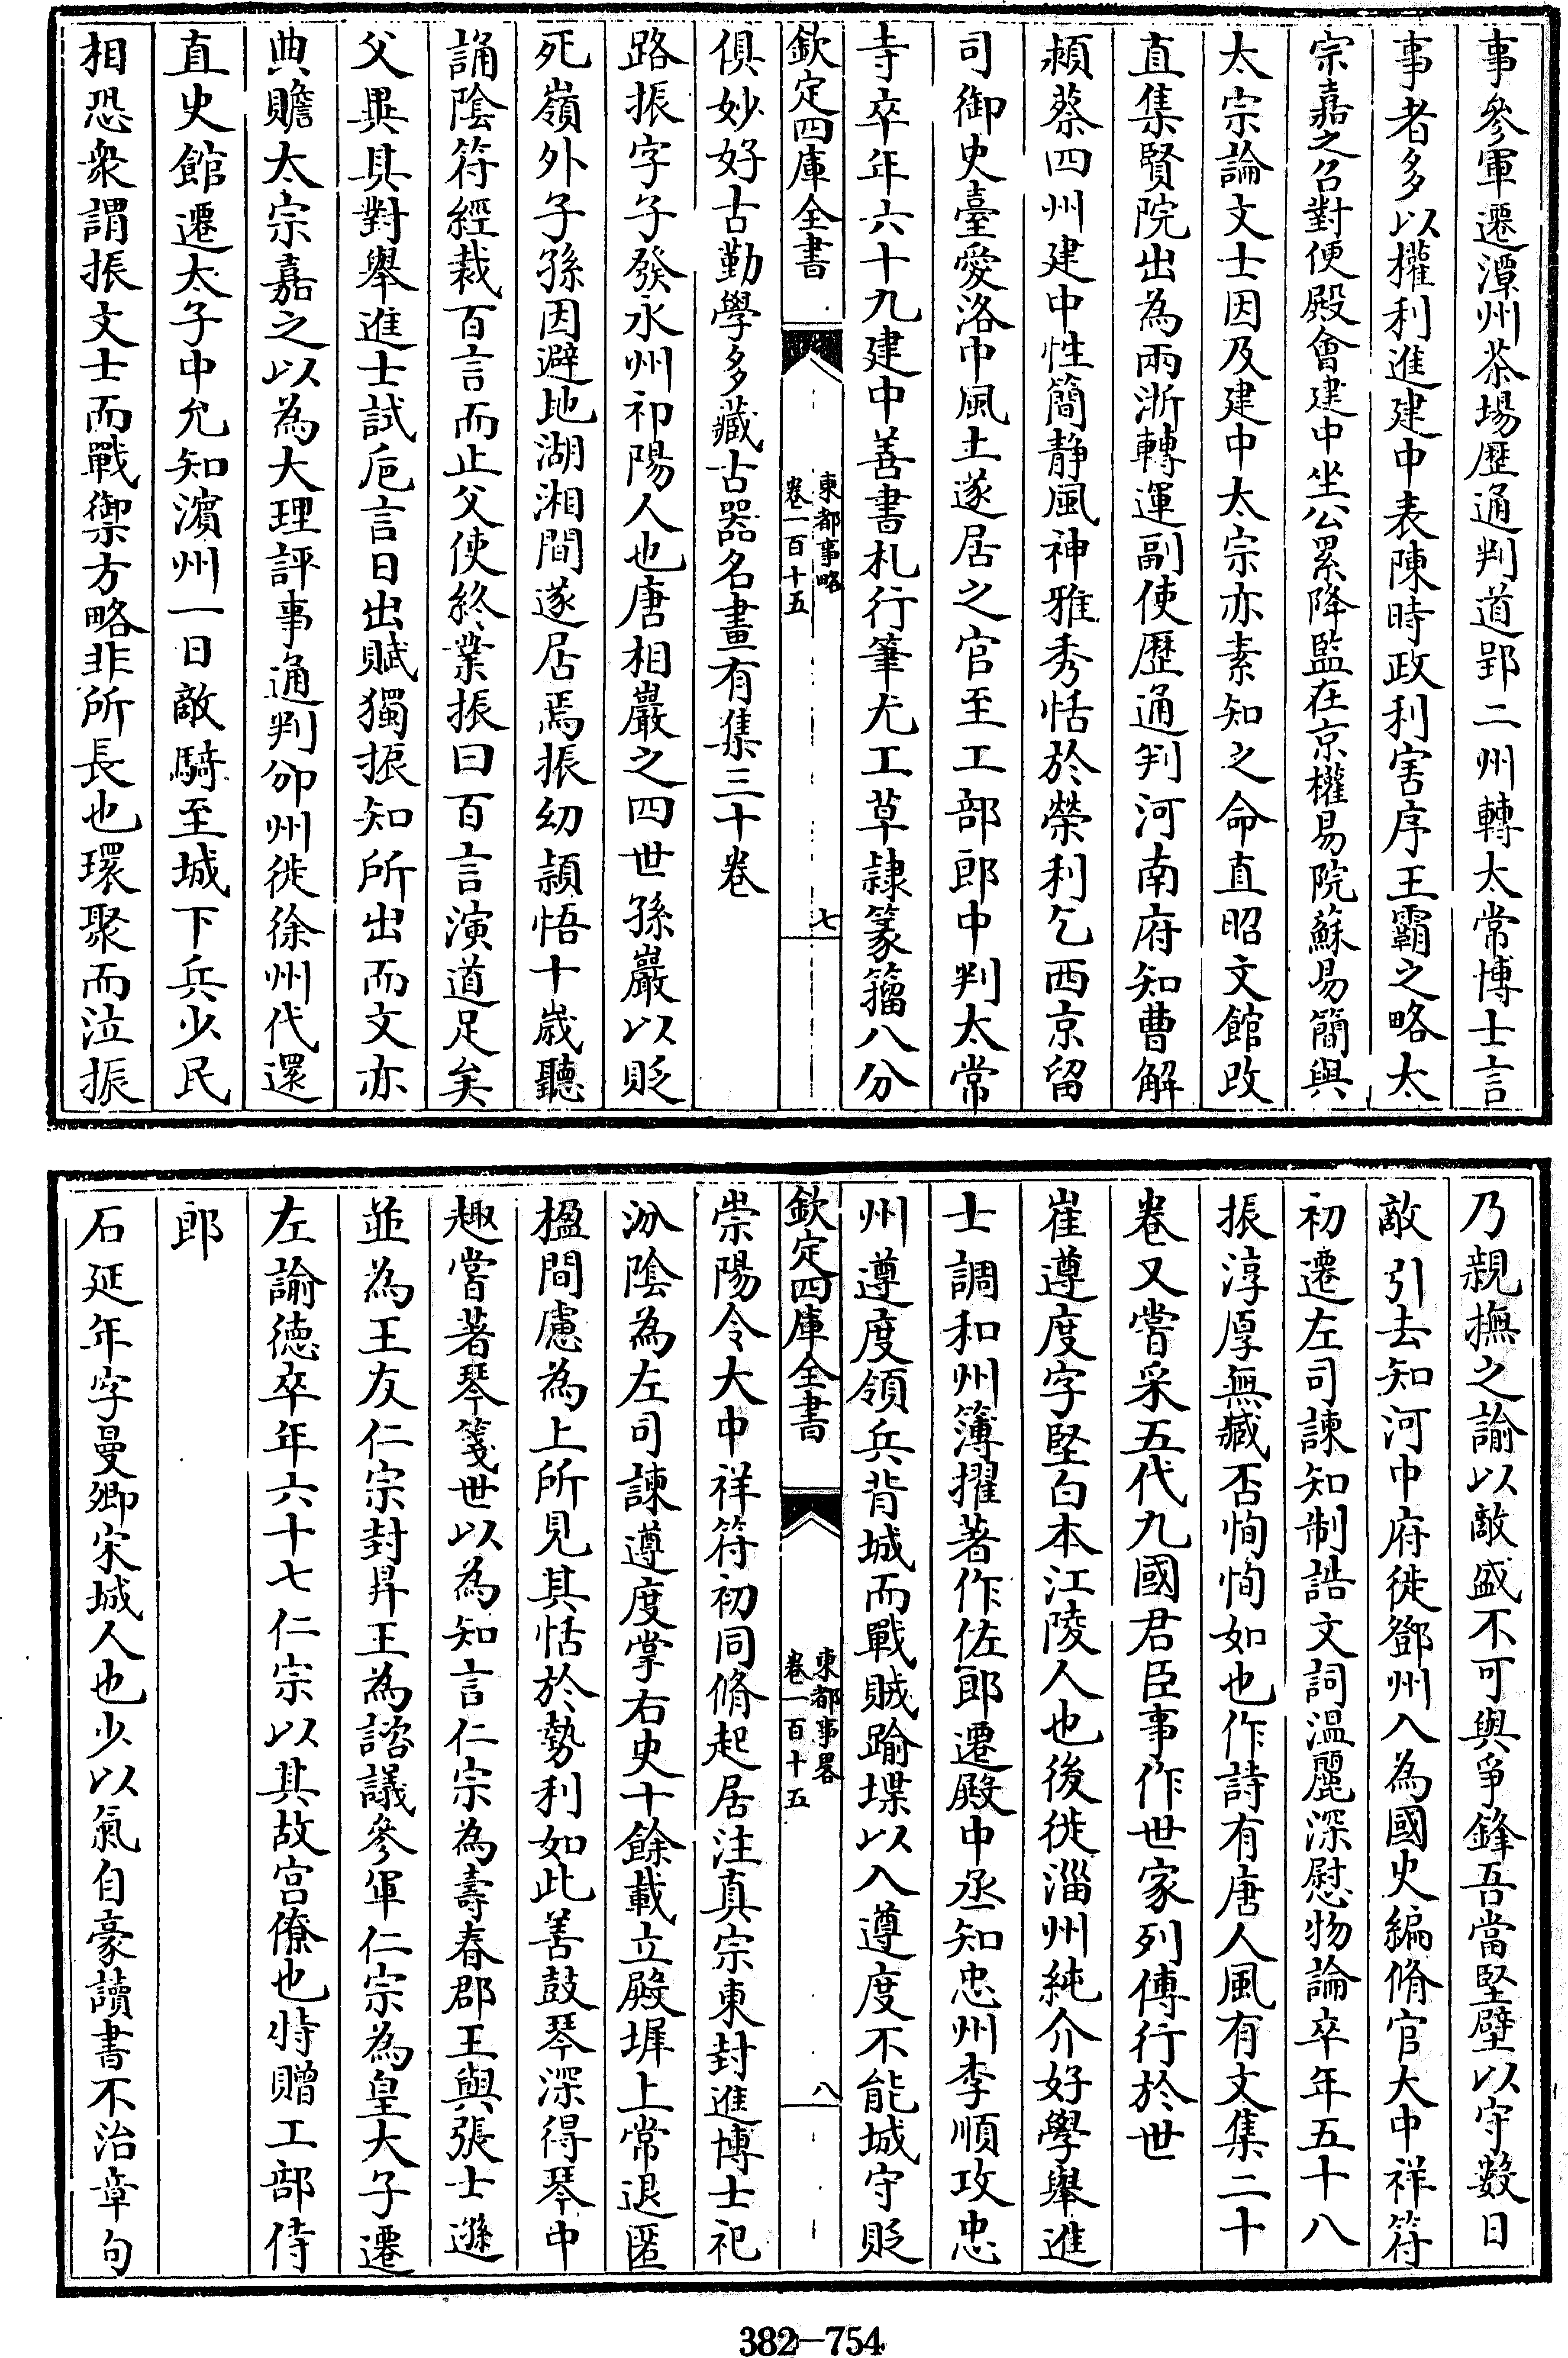 事參軍遷潭州茶場歷通判道郢二州轉太常博士言
事者多以權利進建中表陳時政利害序王霸之略太
宗嘉之召對便殿會建中坐公累降監在京權易院蘇易簡與
太宗論文士因及建中太宗亦素知之命直昭文館改
直集賢院出為兩浙轉運副使歷通判河南府知曹解
潁蔡四州建中性簡静風神雅秀恬於榮利乞西京留
司御史臺愛洛中風土遂居之官至工部郎中判太常
寺卒年六十九建中善書札行筆尤工草隸篆籀八分
欽定四庫全書
東都事略
卷一百十五
七
俱妙好古勤學多藏古器名畫有集三十卷
路振字子發永州祁陽人也唐相巖之四世孫巖以貶
死嶺外子孫因避地湖湘間遂居焉振幼穎悟十歲聽
誦陰符經裁百言而止父使終業振曰百言演道足矣
父異其對舉進士試巵言日出賦獨振知所出而文亦
典贍太宗嘉之以為大理評事通判邠州徙徐州代還
直史館遷太子中允知濱州一日敵騎至城下兵少民
相恐衆謂振文士而戰禦方略非所長也環聚而泣振
乃親撫之諭以敵盛不可與爭鋒吾當堅壁以守數日
敵引去知河中府徙鄧州入為國史編脩官大中祥符
初遷左司諫知制誥文詞温麗深慰物論卒年五十八
振淳厚無臧否恂恂如也作詩有唐人風有文集二十
卷又嘗采五代九國君臣事作世家列傳行於世
崔遵度字堅白本江陵人也後徙淄州純介好學舉進
士調和州簿擢著作佐郎遷殿中丞知忠州李順攻忠
州遵度領兵背城而戰賊踰堞以入遵度不能城守貶
欽定四庫全書
東都事畧
卷一百十五
八
崇陽令大中祥符初同脩起居注真宗東封進博士祀
汾陰為左司諫遵度掌右史十餘載立殿墀上常退匿
楹間慮為上所見其恬於勢利如此善鼓琴深得琴中
趣嘗著琴箋世以為知言仁宗為壽春郡王與張士遜
並為王友仁宗封昇王為諮議參軍仁宗為皇大子遷
左諭德卒年六十七仁宗以其故宫僚也特贈工部侍
郎
石延年字曼卿宋城人也少以氣自豪讀書不治章句
382—754